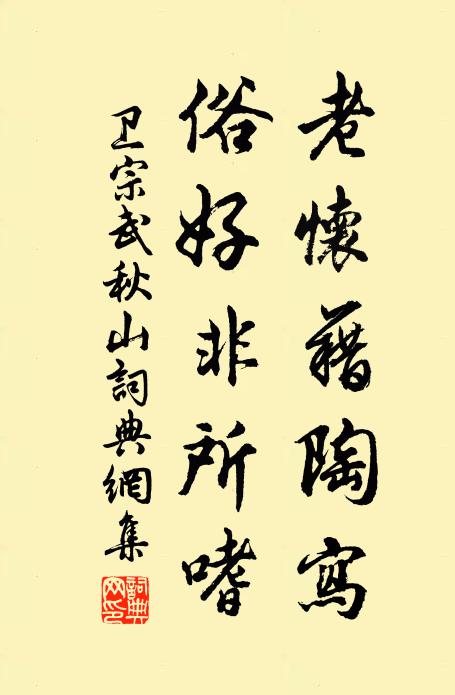 老懷藉陶寫
俗好非所嗜
卫宗武秋山詞典網集
詞典
网印